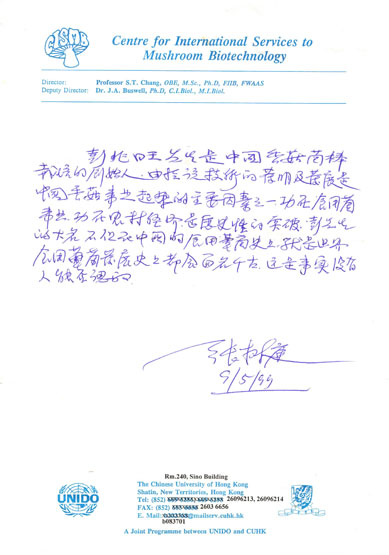 CISMB
Centre for International Services to
Mushroom Biotechnology
Director: Professor S.T. Chang, OBE, M.Sc., Ph.D, FIIB, FWAAS
Deputy Director: Dr. J.A. Buswell, Ph.D, C.I.Biol., M.I.Biol.
彭兆旺先生是中国香菇菌棒
栽培的创始人。由于这技术的发明及发展是
中国香菇事业起步的主要因素之一。功在食用菌
事业，功在农村经济，是历史性的突破。彭先生
的大名不但在中国的食用菌历史上，就是世界
食用蕈菌发展史上都会留名千古。这是事实没有
人能否认的。
张树庭
9/5/99
UNIDO
Rm.240, Sino Building
The Chinese University of Hong Kong
Shatin, New Territories, Hong Kong
Tel: (852) 26096213, 26096214
FAX: (852) 2603 6656
E. Mail: @mailserv.cuhk.hk
b083701
A Joint Programme between UNIDO and CUHK